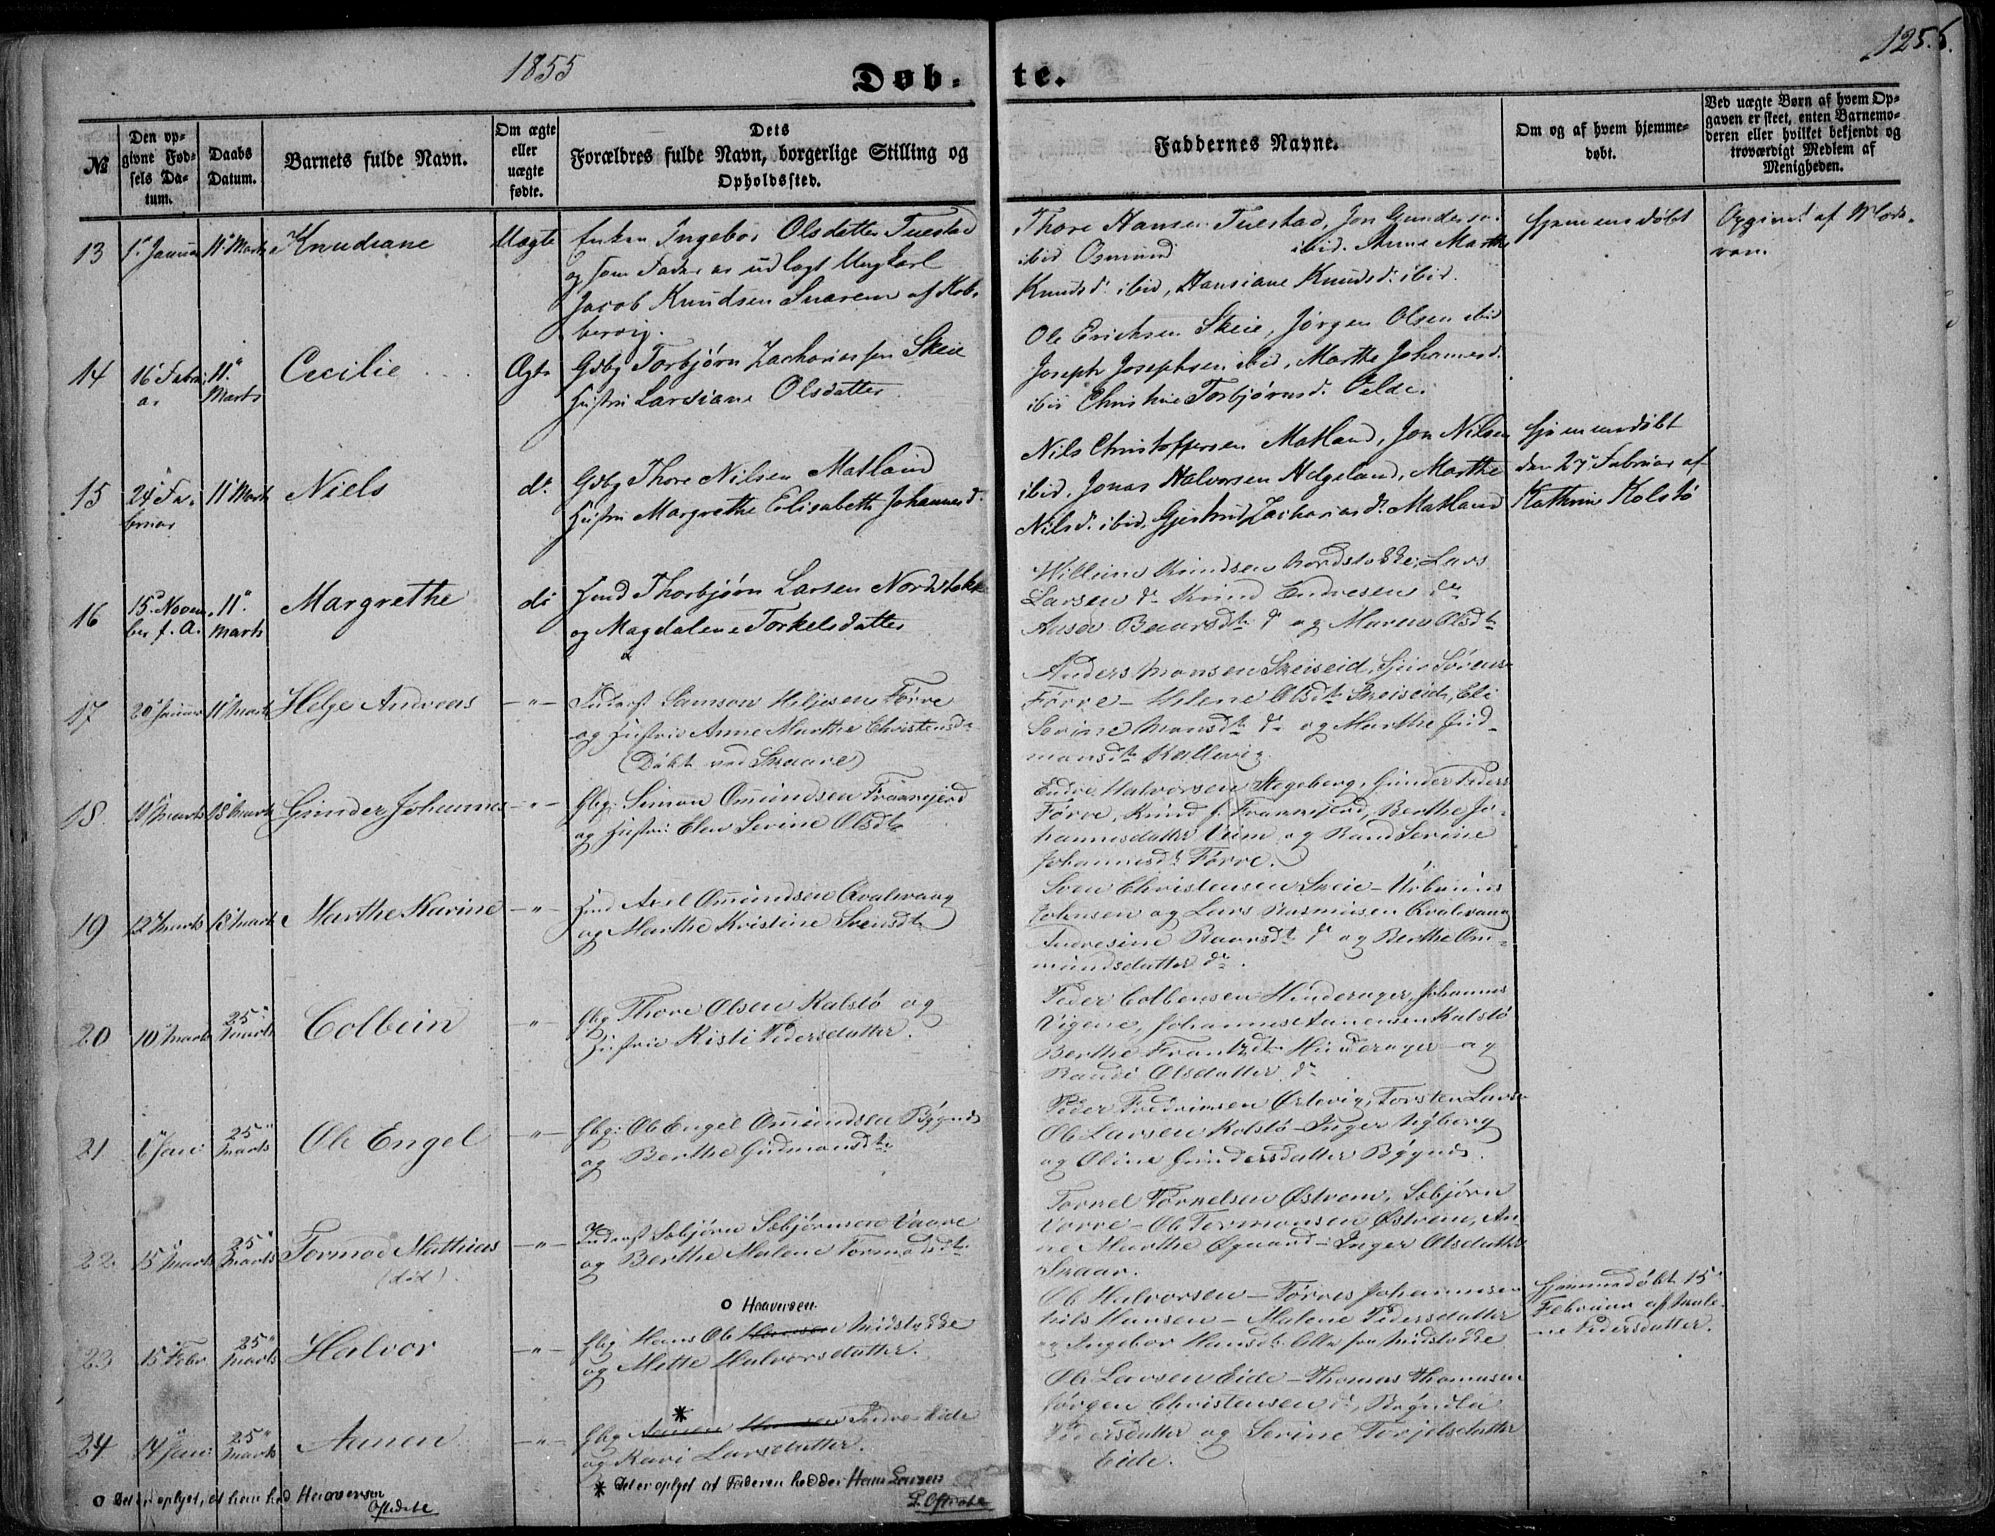 1855
Døb-
te.
125. 6.
№
Den op-
givne Fød-
sels Da-
tum.
Daabs
Datum.
Barnets fulde Navn.
Om ægte
eller
uægte
fødte.
Dets
Forældres fulde Navn, borgerlige Stilling og
Opholdssted.
Faddernes Navne.
Om og af hvem hjemme-
døbt.
Ved uægte Børn af hvem Op-
gaven er skeet, enten Barnemo-
deren eller hvilket bekjendt og
troværdigt Medlem af
Menigheden.
13
11 Marts
Knudiane
Uægte
Enken Ingebor Olsdatter Tuestad
og som Fader er udlagt Ungkarl
Jacob Knudsen Snarem af Kob-
bervig.
Thore Hansen Tuestad, Jon Gunderson
ibid Osmund ibid. Anne Marthe
Knudsd. ibid, Hansiane Knudsd. ibid.
Hjemmedøbt
Opgivet af Mode-
ren.
14
16 Febru
ar
11
Marts
Cecilie
Ægte
Gdbg Torbjørn Zachariassen Skeie
Hustru Larsiane Olsdatter
Ole Ericksen Skeie, Jørgen Olsen ibid
Joseph Josephsen ibid, Marthe Johannesd.
ibid Christine Torbjørnsd. Velde.
15
24 Fe-
bruar
11 Marts
Niels
do.
Gdbg Thore Nilsen Matland
Hustru Margrethe Elisabeth Johannesd.
Nils Christoffersen Matland, Jon Nilsen
ibid, Jonas Halvorsen Helgeland, Marthe
Nilsd. ibid, Gjertrud Zachariasd. Matland
Hjemmedøbt
den 27 Februar af
Kathrine Kolstø
16
15 Novem
ber f. A.
11
Marts
Margrethe
do
Hmd Thorbjørn Larsen Nordstokke
og Magdalene Torkelsdatter
Willum Knudsen Nordstokke, Lars
Larsen do Knud Endresen do
Baarsdtr do og Maren Olsdtr
17
20 Januar
11 Marts
Helge Andreas
—„—
Inderst Samson Helgesen Førre
og Hustru Anne Marthe Christensdtr
(Døbt ved Skaare)
Anders Monsen Skeiseid, Siur Sørens
Førre — Helene Olsdtr Skeiseid, Eli
Serine Monsdtr do og Marthe Gud-
mansdtr Kallevig
18
18 Marts
Gunder Johannes
—„—
Gbg: Simon Omundsen Frannjord
og Hustru Elen Serine Olsdtr
Endre Halvorsen Stegeberg, Gunder Peders
Førre, Knud J. Frannjord, Berthe Jo-
hannesdatter Veim og Rand Serine
Johannesdtr Førre.
19
12 Marts
18 Marts
Marthe Karine
—„—
Hmd Axel Omundsen Qvalevaag
og Marthe Kristine Svensdtr
Sven Christensen Skeie — Urbanus
Johnsen og Lars Rasmusen Qvalevaag
Andresine Baarsdtr do og Berthe Om-
mundsdatter do.
20
10 Marts
25
Marts
Colbein
—„—
Gbg Thore Olsen Kalstø og
Hustrue Kisti Pedersdatter.
Peder Colbensen Hinderager, Johannes
Vigene, Johannes Aanensen Kalstø
Berthe Frantzdtr Hinderager og
Randi Olsdatter do
21
6 Jan:
25
Marts
Ole Engel
—„—
Gbg: Ole Engel Omundsen Bøgnes
og Berthe Gudmansdtr
Peder Fredriksen Østevig, Torsten Larsen
Ole Larsen Kolstø — Inger Vigberg
og Oline Gundersdatter Bøgnes.
22
15 Marts
25
Marts
Tormod Mathias
(død).
—„—
Inderst Sebjørn Sebjørnsen Vaare
og Berthe Malene Tormodsdtr.
Torkel Torkelsen Østrem, Sebjørn
Vorre — Ole Tormonsen Østrem, An-
ne Marthe Øgaard — Inger Olsdatter
Skaar.
o Haaversen
23
15 Febr
25
Marts
Halvor
—„—
Gbg Hans Ole Midstokke
og Mette Halvorsdatter.
Ole Halvorsen — Tørres Johannesen
Nils Hansen — Malene Pedersdatter
og Ingebor Hansdtr Alle fra Midstokke
Hjemmedøbt 15
Februar af Male-
ne Pedersdatter.
24
14 Jan:
25
Marts
Aanen
—„—
*
Gbg Aanen Hansen Indre Eide
og Kari Larsdatter.
Ole Larsen Eide — Thomas Thomasen
Jørgen Christensen do, Ragnilda
Pedersdatter og Serine Torjelsdatter
Eide.
o Det er oplyst, at han hed Haaversen
Oftedahl
* Det er oplyst at Faderen hedder Hans Larsen